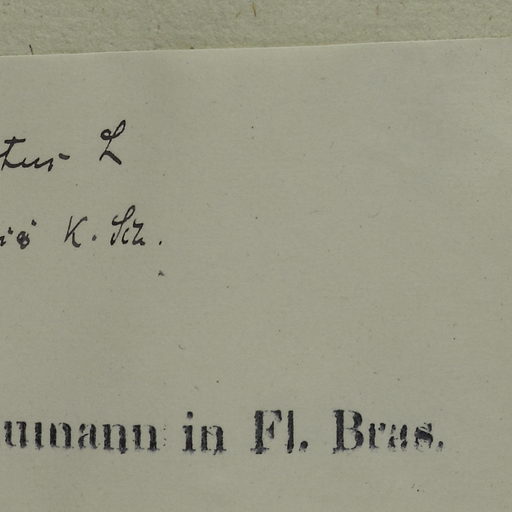 tus L
is K. Sch.
umann in Fl. Bras.